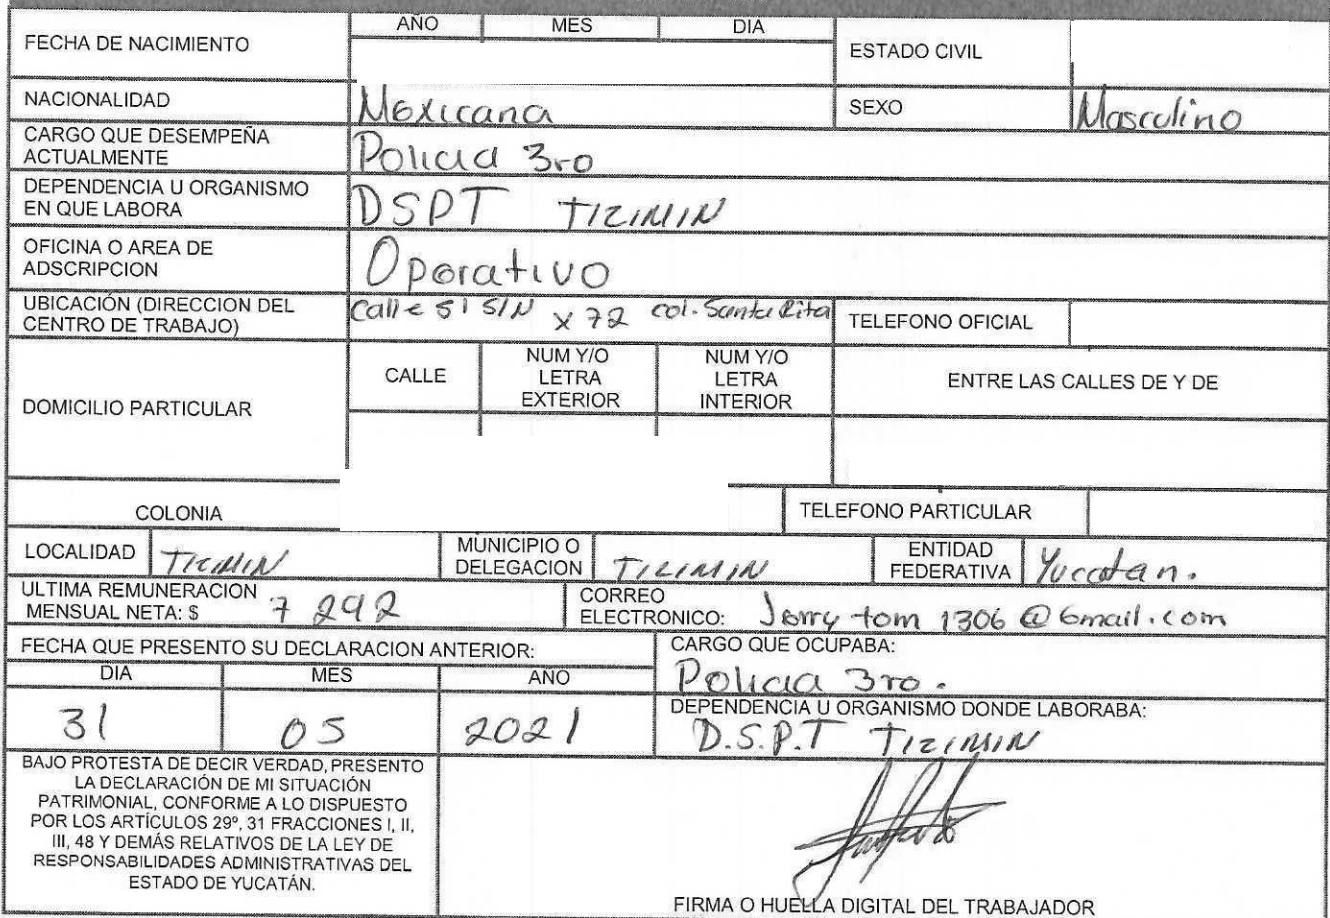 FECHA DE NACIMIENTO
AÑO MES DIA
ESTADO CIVIL
NACIONALIDAD Mexicana SEXO Masculino
CARGO QUE DESEMPEÑA
ACTUALMENTE Policia 3ro
DEPENDENCIA U ORGANISMO
EN QUE LABORA DSPT TIZIMIN
OFICINA O AREA DE
ADSCRIPCION Operativo
UBICACIÓN (DIRECCION DEL
CENTRO DE TRABAJO) Calle 51 S/N x 72 col. Santa Rita TELEFONO OFICIAL
DOMICILIO PARTICULAR
CALLE
NUM Y/O
LETRA
EXTERIOR
NUM Y/O
LETRA
INTERIOR
ENTRE LAS CALLES DE Y DE
COLONIA TELEFONO PARTICULAR
LOCALIDAD TIZIMIN
MUNICIPIO O
DELEGACION TIZIMIN
ENTIDAD
FEDERATIVA Yucatan.
ULTIMA REMUNERACION
MENSUAL NETA: $ 7 292
CORREO
ELECTRONICO: Jerry tom 1306 @ Gmail.com
FECHA QUE PRESENTO SU DECLARACION ANTERIOR:
DIA MES AÑO
31 05 2021
CARGO QUE OCUPABA:
Policia 3ro.
DEPENDENCIA U ORGANISMO DONDE LABORABA:
D.S.P.T TIZIMIN
BAJO PROTESTA DE DECIR VERDAD, PRESENTO
LA DECLARACIÓN DE MI SITUACIÓN
PATRIMONIAL, CONFORME A LO DISPUESTO
POR LOS ARTÍCULOS 29º, 31 FRACCIONES I, II,
III, 48 Y DEMÁS RELATIVOS DE LA LEY DE
RESPONSABILIDADES ADMINISTRATIVAS DEL
ESTADO DE YUCATÁN.
FIRMA O HUELLA DIGITAL DEL TRABAJADOR